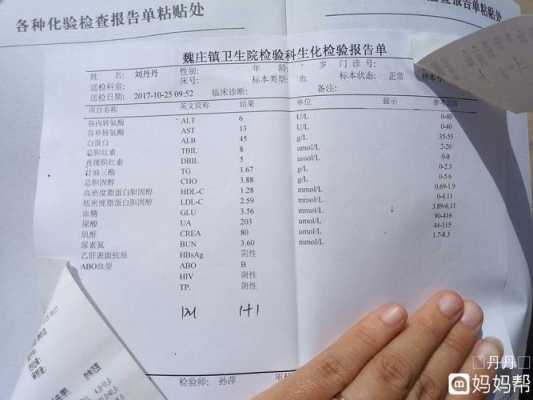 各种化验检查报告单粘贴处
查报告单粘贴处
魏庄镇卫生院检验科生化检验报告单
姓名: 刘丹丹 性别: 年龄: 岁 门诊号:
送检科室: 床号: 标本类型: 血 标本状态: 正常
送检日期: 2017-10-25 09:52 临床诊断: 备注:
项目名称 英文简称 结果 单位 提示
谷丙转氨酶 ALT 6 U/L 0-40
谷草转氨酶 AST 13 U/L 0-40
白蛋白 ALB 45 g/L 35-55
总胆红素 TBIL 8 umol/L 2-20
直接胆红素 DBIL 5 umol/L 0-8
甘油三酯 TG 1.67 g/L 0-2.3
总胆固醇 CHO 3.88 g/L 0-5.6
高密度脂蛋白胆固醇 HDL-C 1.28 mmol/L 0.69-1.9
低密度脂蛋白胆固醇 LDL-C 2.59 mmol/L 0-4.11
血糖 GLU 3.56 mmol/L ↓ 3.89-6.11
尿酸 UA 203 umol/L 90-416
肌酐 CREA 80 umol/L 44-115
尿素氮 BUN 3.60 mmol/L 1.7-8.3
乙肝表面抗原 HBsAg 阴性
ABO血型 ABO B
HIV 阴性
TP. 阴性
检验师: 孙萍
丹丹
妈妈帮